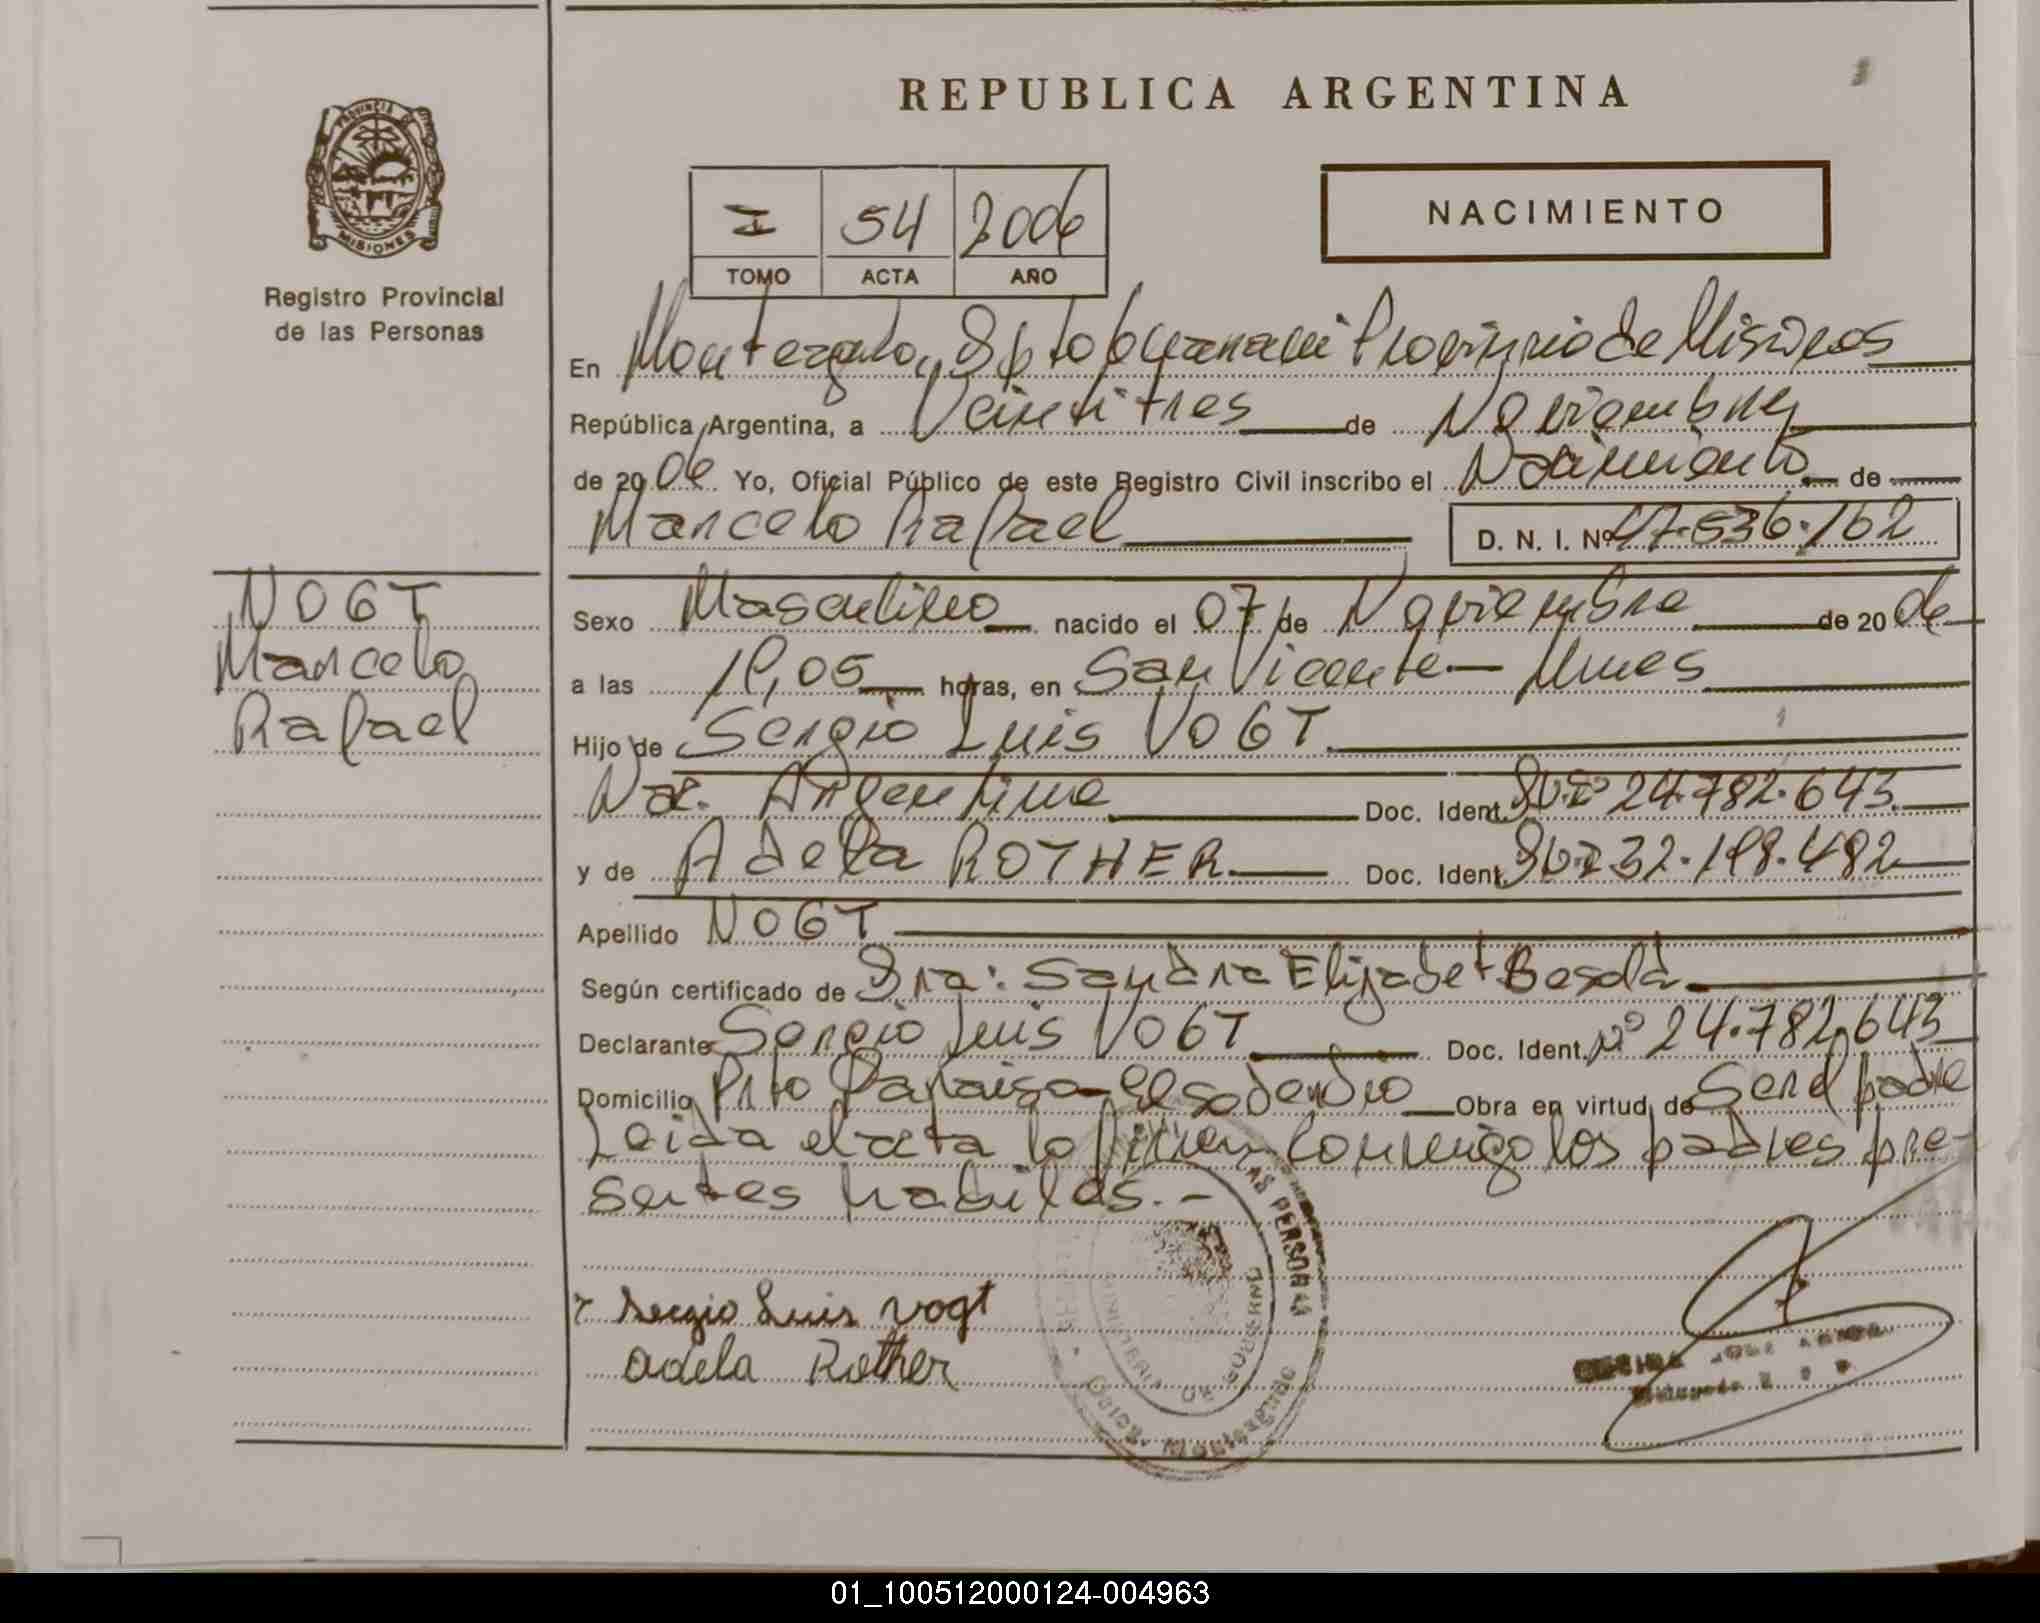 REPUBLICA ARGENTINA
PROVINCIA DE
MISIONES
Registro Provincial
de las Personas
I 54 2006
TOMO ACTA AÑO
NACIMIENTO
En Monteagudo, Dpto Guarani Provincia de Misiones
República Argentina, a Veintitres de Noviembre
de 2006 Yo, Oficial Público de este Registro Civil inscribo el Nacimiento de
Marcelo Rafael D. N. I. Nº 47.536.162
VOGT
Marcelo
Rafael
Sexo Masculino nacido el 07 de Noviembre de 2006
a las 19,05 horas, en San Vicente - Mnes
Hijo de Sergio Luis VOGT
Nac. Argentino Doc. Ident. 24.782.643
y de Adela ROTHER Doc. Ident. 32.198.482
Apellido VOGT
Según certificado de Dra: Sandra Elizabet Besold
Declarante Sergio Luis VOGT Doc. Ident. Nº 24.782.643
Domicilio Pto Paraiso - El soberbio Obra en virtud de Ser el padre
Leida el acta la firman conmigo los padres pre-
sentes habiles.-
Sergio Luis vogt
adela Rother
AS PERSONAS
MINISTERIO DE GOBIERNO
Deleg. Monteagudo
01_100512000124-004963